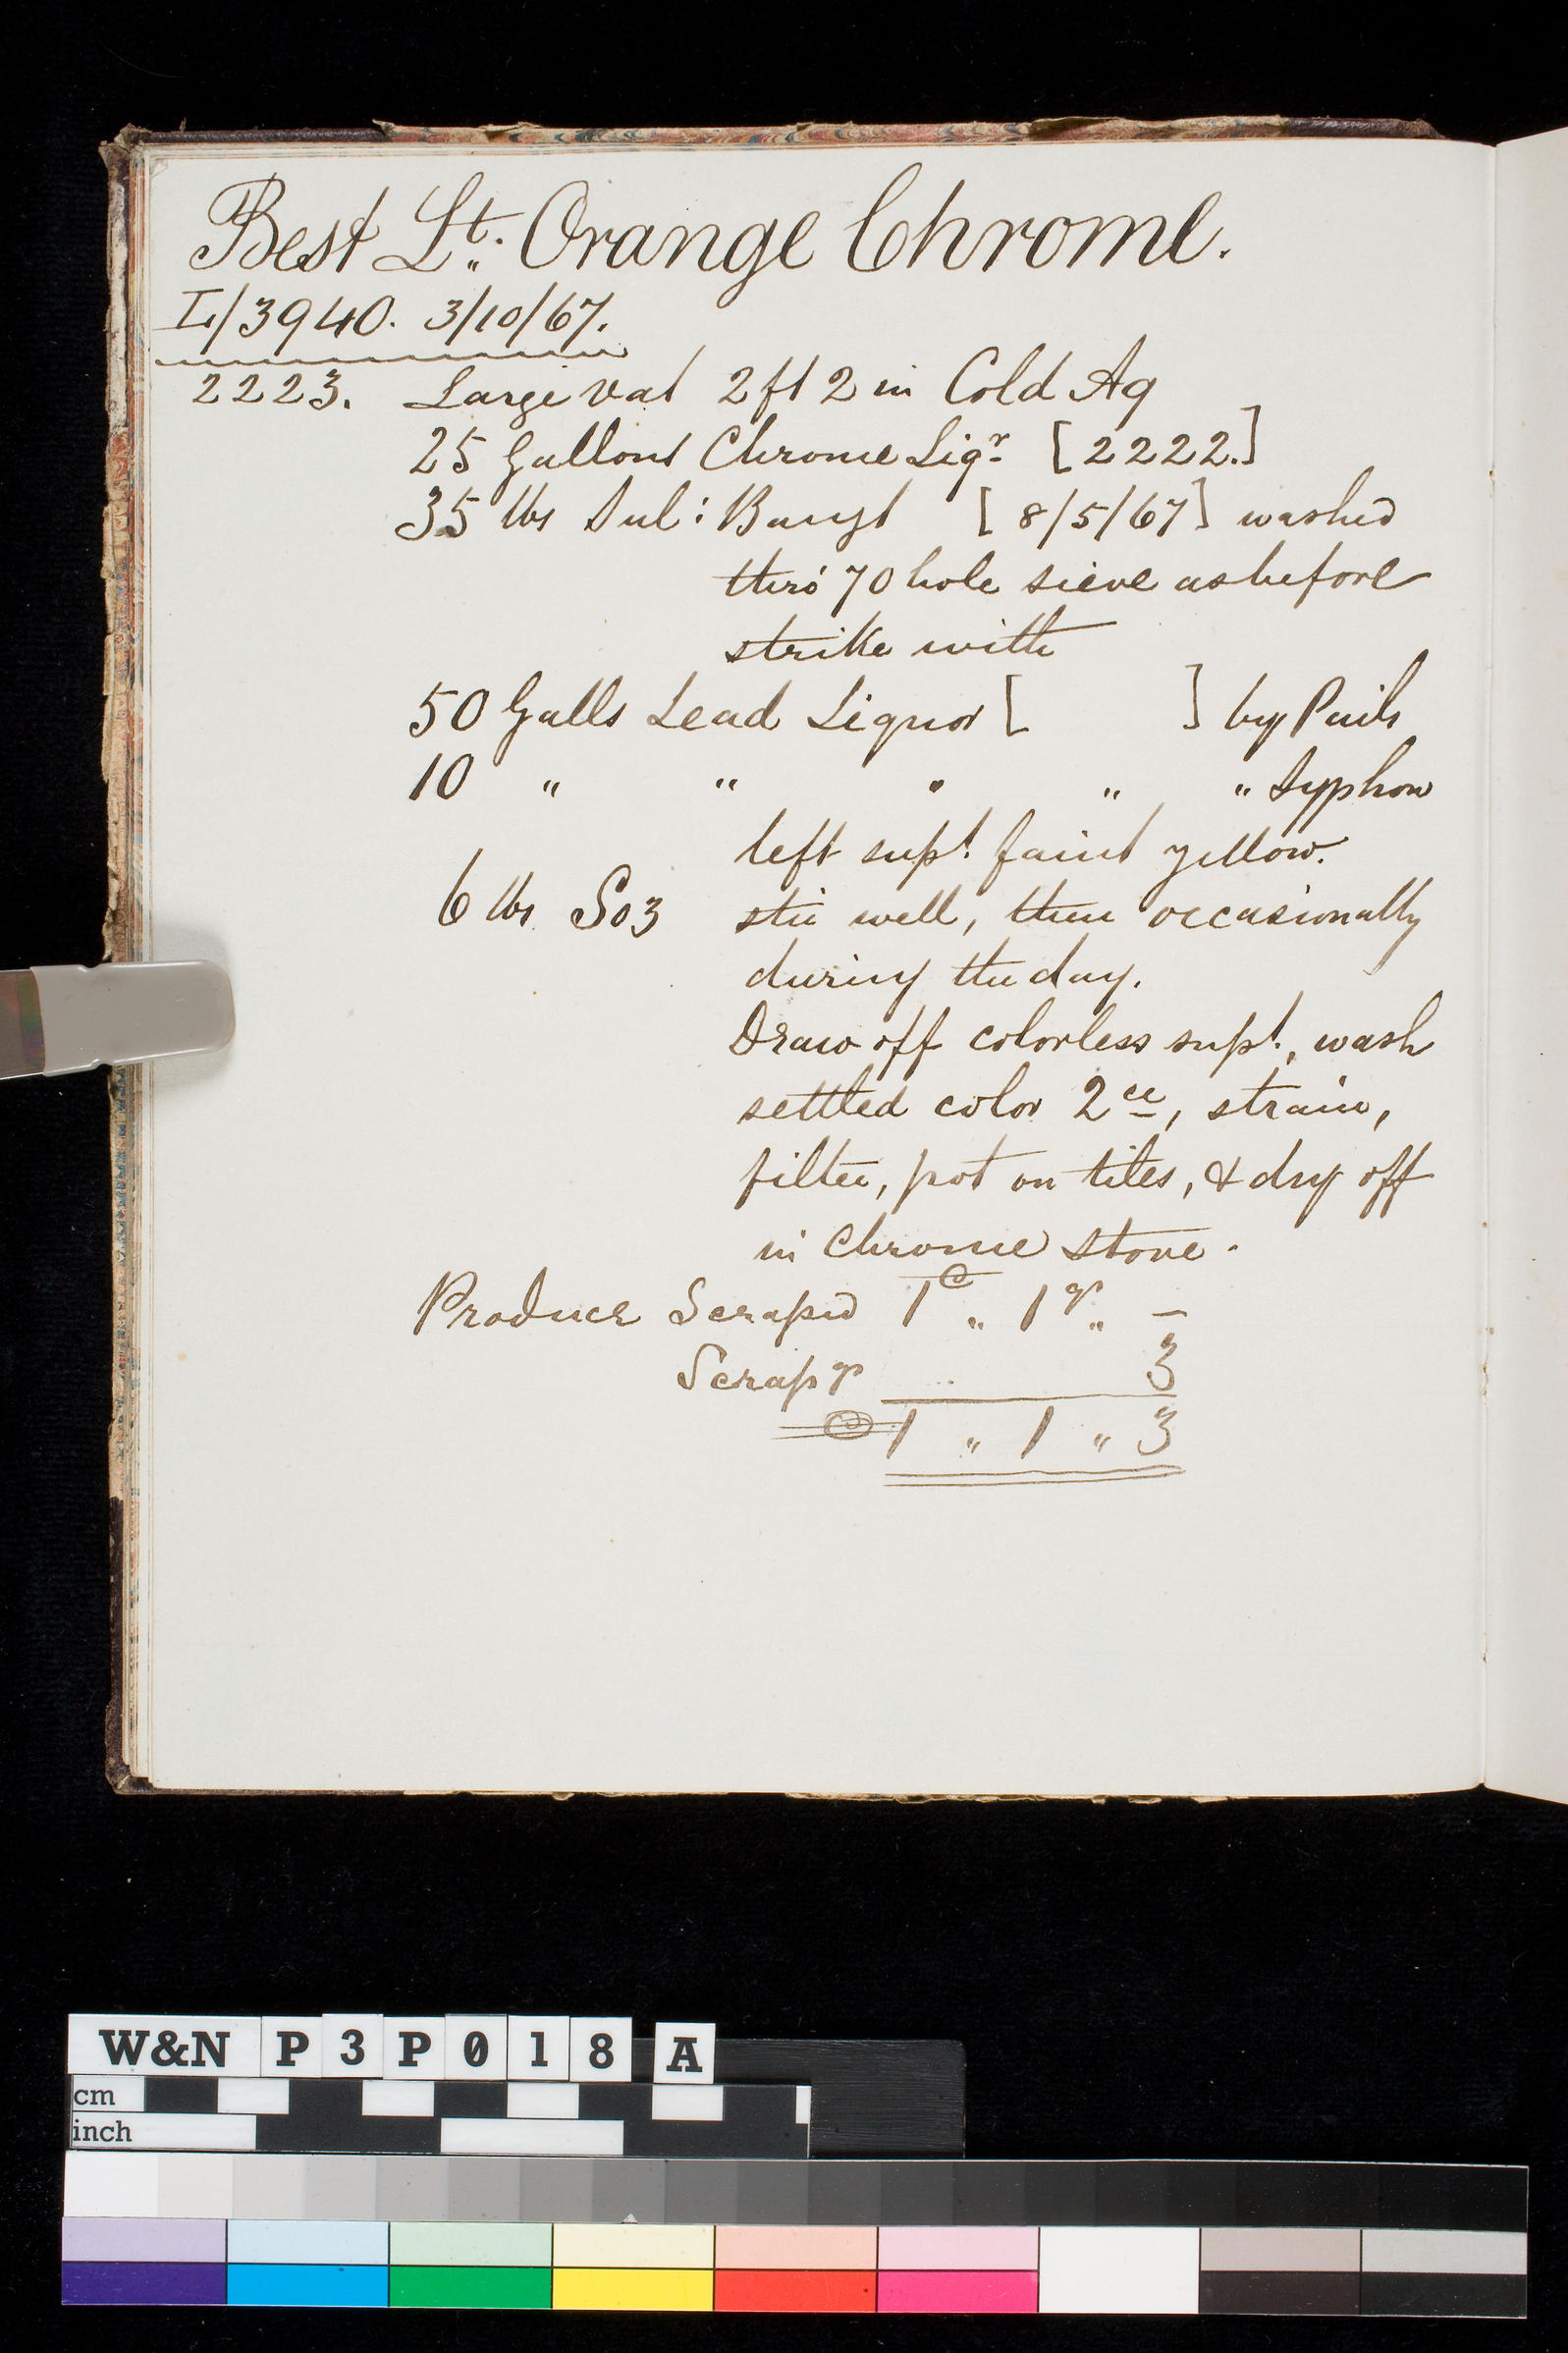 Best Lt. Orange Chrome.
L/3940. 3/10/67.
2223. Large vat 2 ft 2 in Cold Aq
25 Gallons Chrome Liqr [2222.]
35 lbs Sul: Baryt [8/5/67] washed
thro' 70 hole sieve as before
strike with
50 Galls Lead Liquor [ ] by Pails
10 " " " " " Syphon
left supt. faint yellow.
6 lbs So3 stir well, then occasionally
during the day.
Draw off colorless supt., wash
settled color 2ce, strain,
filter, pot on tiles, & dry off
in Chrome stove.
Produce Scraped 1C " 1qr " –
Scrapgs 3
1 " 1 " 3
W&N P3P018A
cm
inch